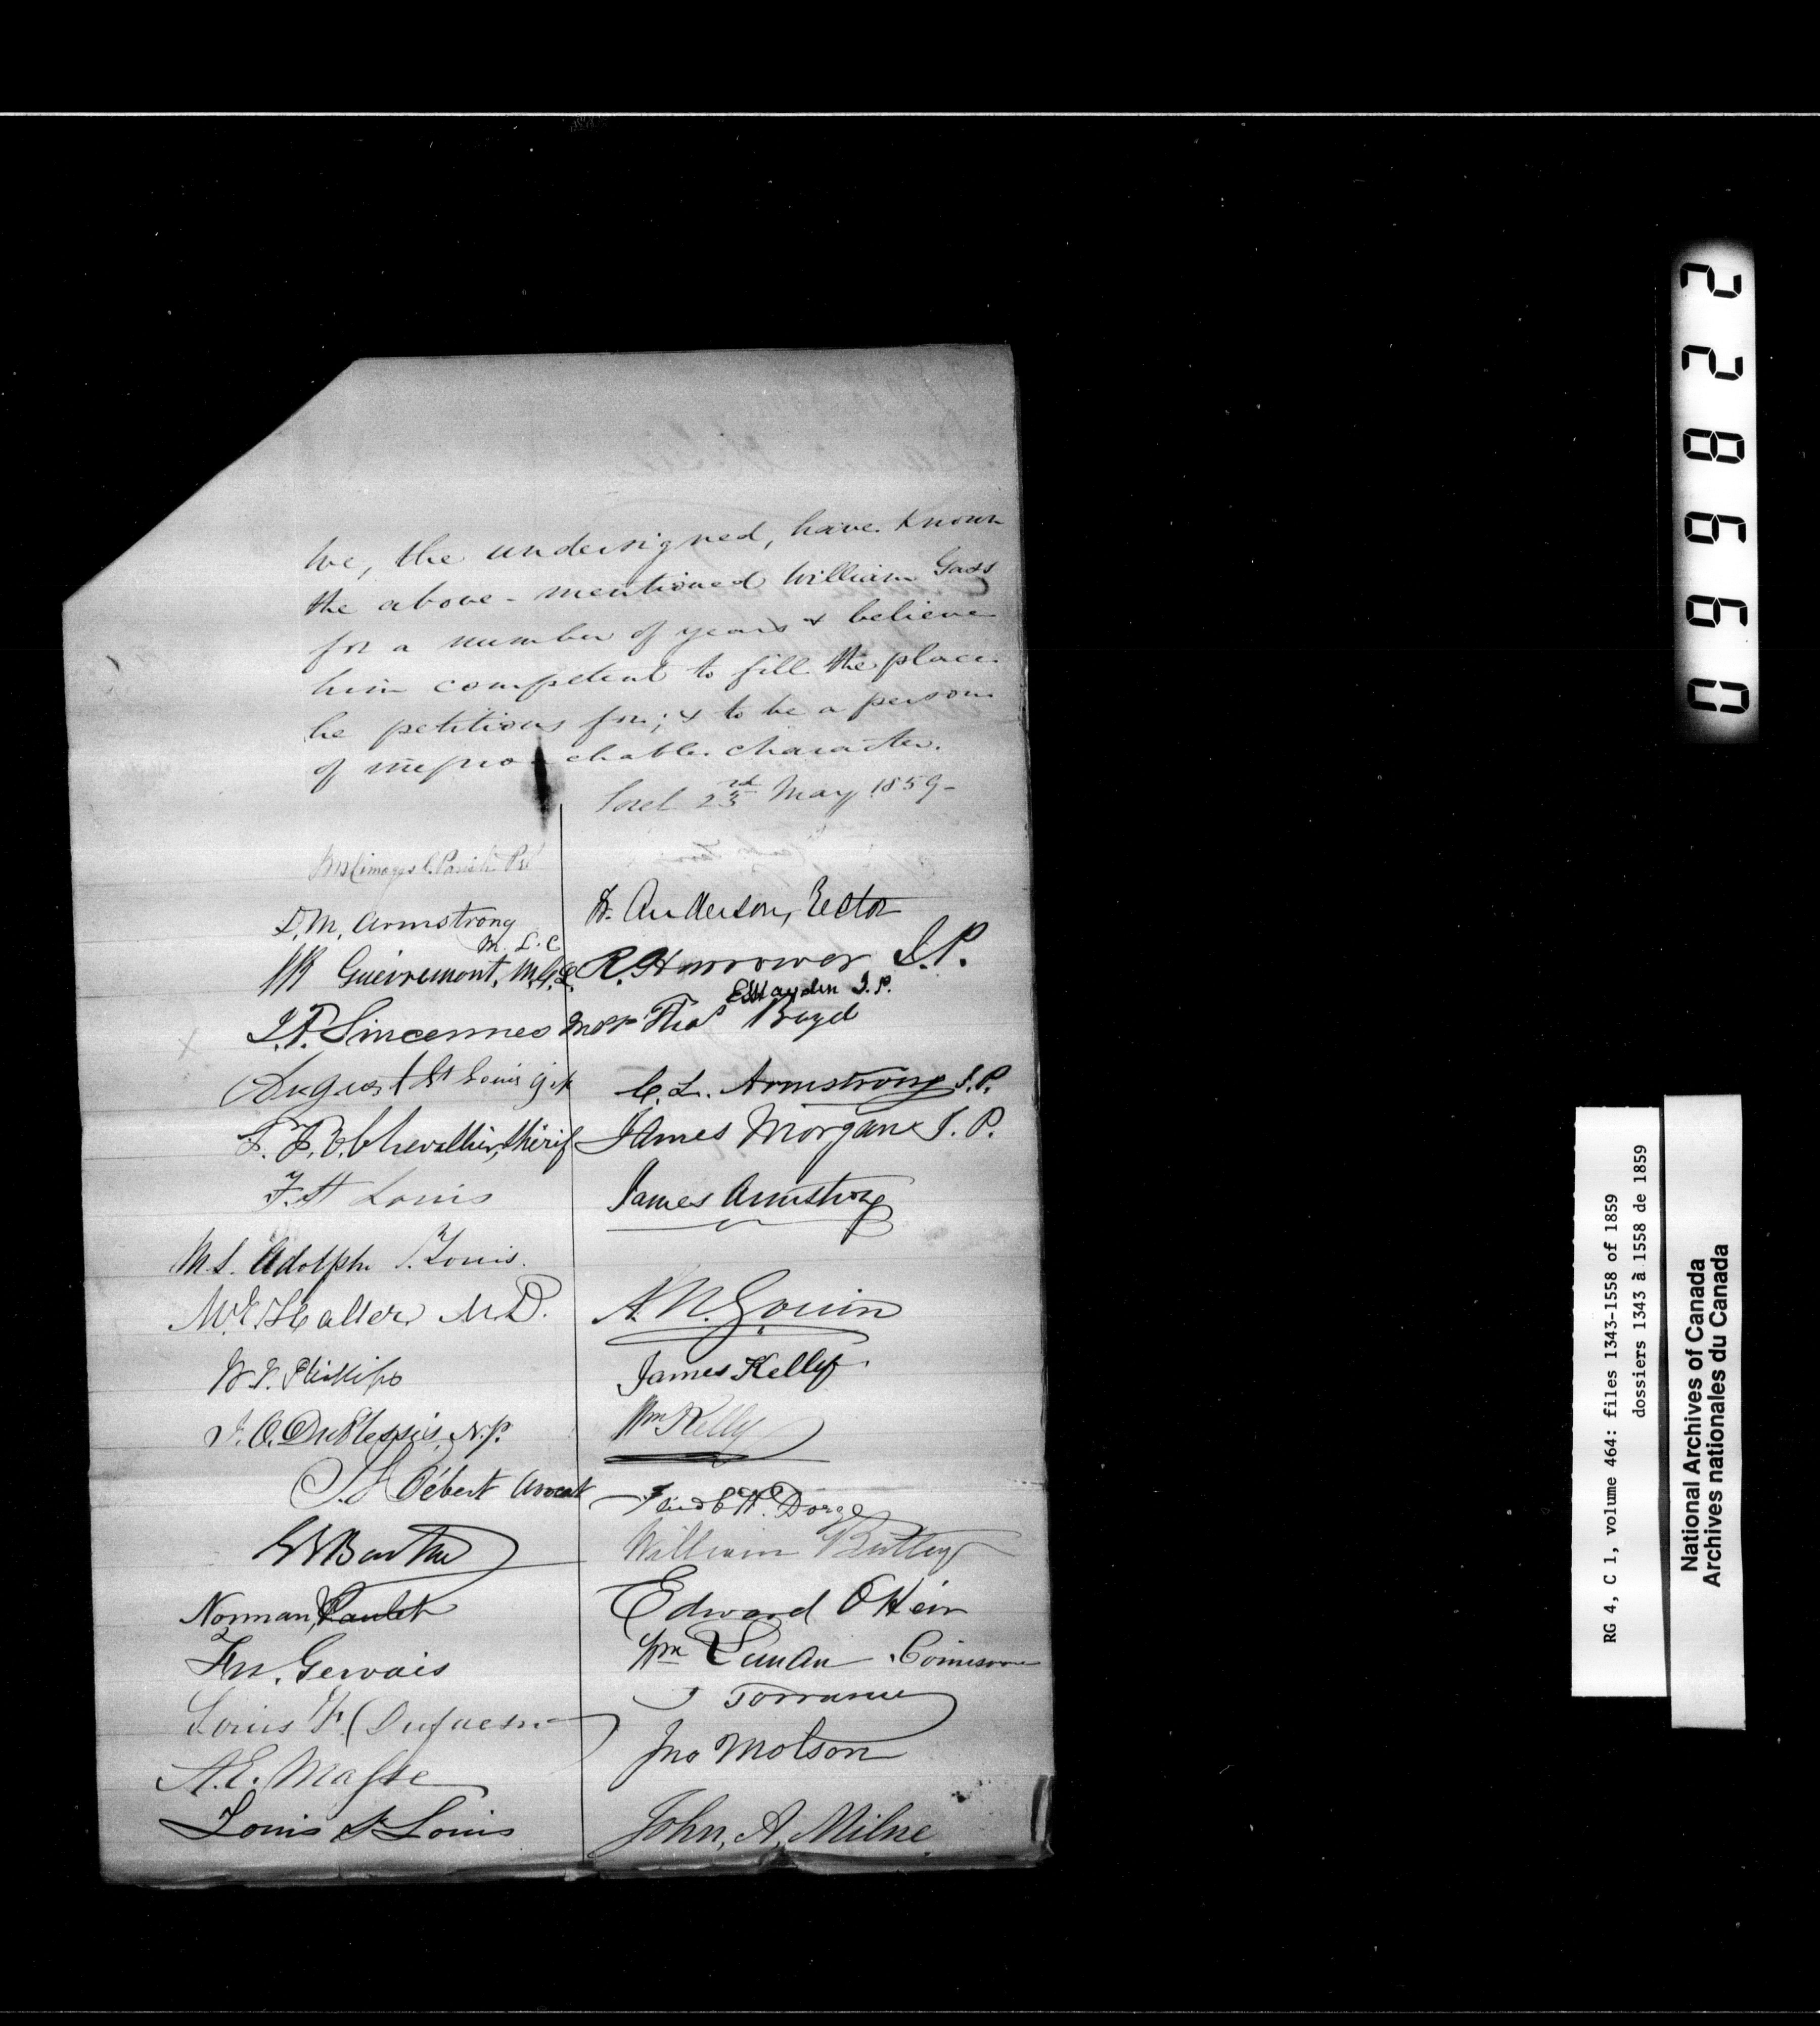 We, the undersigned, have known
the above-mentioned William Gass
for a number of years & believe
him competent to fill the place
he petitions for; & to be a person
of irreproachable character.
Sorel 23rd May 1859-
D. M. Armstrong
M. L. C
JB Guèvremont, M.L.C.
J. F. Sincennes
August St Louis
P. R. Chevallier, Shérif
F. St Louis
M.S. Adolphe St. Louis.
Wm Haller M.D.
W. F. Phillips
J. O. Duplessis, N.P.
Hébert Avocat
GI Barthe
Norman, Paulet
Frs. Gervais
Louis F. Dufresne
A. E. Masse
Louis St Louis
W. Anderson, Rector
R. Harrower J.P.
E Hayden J.P.
Thos Boyd
C. L. Armstrong J.P.
James Morgan J.P.
James Armstrong
A. N. Gouin
James Kelly
Wm Kelly
William Buttery
Edward O Heir
Wm Lunan
Torrance
Jno Molson
John, A, Milne
228660
RG 4, C 1, volume 464: files 1343-1558 of 1859
dossiers 1343 à 1558 de 1859
National Archives of Canada
Archives nationales du Canada